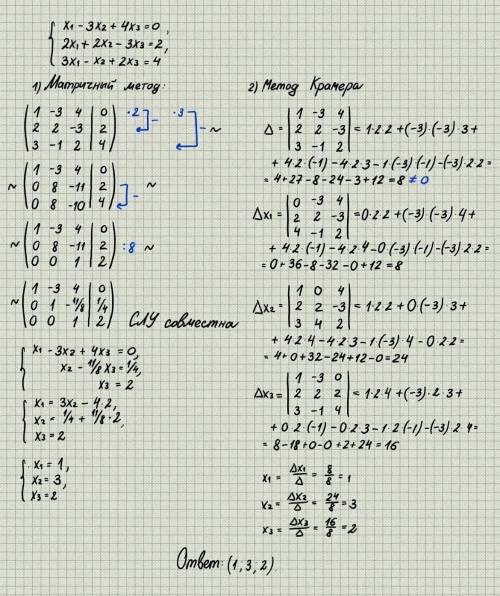 { x₁ - 3x₂ + 4x₃ = 0,
2x₁ + 2x₂ - 3x₃ = 2,
3x₁ - x₂ + 2x₃ = 4
1) Матричный метод:
( 1 -3 4 | 0 )
( 2 2 -3 | 2 ) ·2 - ·3 - ~
( 3 -1 2 | 4 )
~ ( 1 -3 4 | 0 )
( 0 8 -11 | 2 ) - ~
( 0 8 -10 | 4 )
~ ( 1 -3 4 | 0 )
( 0 8 -11 | 2 ) :8 ~
( 0 0 1 | 2 )
~ ( 1 -3 4 | 0 )
( 0 1 -11/8 | 1/4 )
( 0 0 1 | 2 ) СЛУ совместна
{ x₁ - 3x₂ + 4x₃ = 0,
x₂ - 11/8 x₃ = 1/4,
x₃ = 2
{ x₁ = 3x₂ - 4·2,
x₂ = 1/4 + 11/8·2,
x₃ = 2
{ x₁ = 1,
x₂ = 3,
x₃ = 2
2) Метод Крамера
Δ = | 1 -3 4 |
| 2 2 -3 | = 1·2·2 + (-3)·(-3)·3 +
| 3 -1 2 |
+ 4·2·(-1) - 4·2·3 - 1·(-3)·(-1) - (-3)·2·2 =
= 4 + 27 - 8 - 24 - 3 + 12 = 8 ≠ 0
Δx₁ = | 0 -3 4 |
| 2 2 -3 | = 0·2·2 + (-3)·(-3)·4 +
| 4 -1 2 |
+ 4·2·(-1) - 4·2·4 - 0·(-3)·(-1) - (-3)·2·2 =
= 0 + 36 - 8 - 32 - 0 + 12 = 8
Δx₂ = | 1 0 4 |
| 2 2 -3 | = 1·2·2 + 0·(-3)·3 +
| 3 4 2 |
+ 4·2·4 - 4·2·3 - 1·(-3)·4 - 0·2·2 =
= 4 + 0 + 32 - 24 + 12 - 0 = 24
Δx₃ = | 1 -3 0 |
| 2 2 2 | = 1·2·4 + (-3)·2·3 +
| 3 -1 4 |
+ 0·2·(-1) - 0·2·3 - 1·2·(-1) - (-3)·2·4 =
= 8 - 18 + 0 - 0 + 2 + 24 = 16
x₁ = Δx₁/Δ = 8/8 = 1
x₂ = Δx₂/Δ = 24/8 = 3
x₃ = Δx₃/Δ = 16/8 = 2
Ответ: (1; 3; 2).